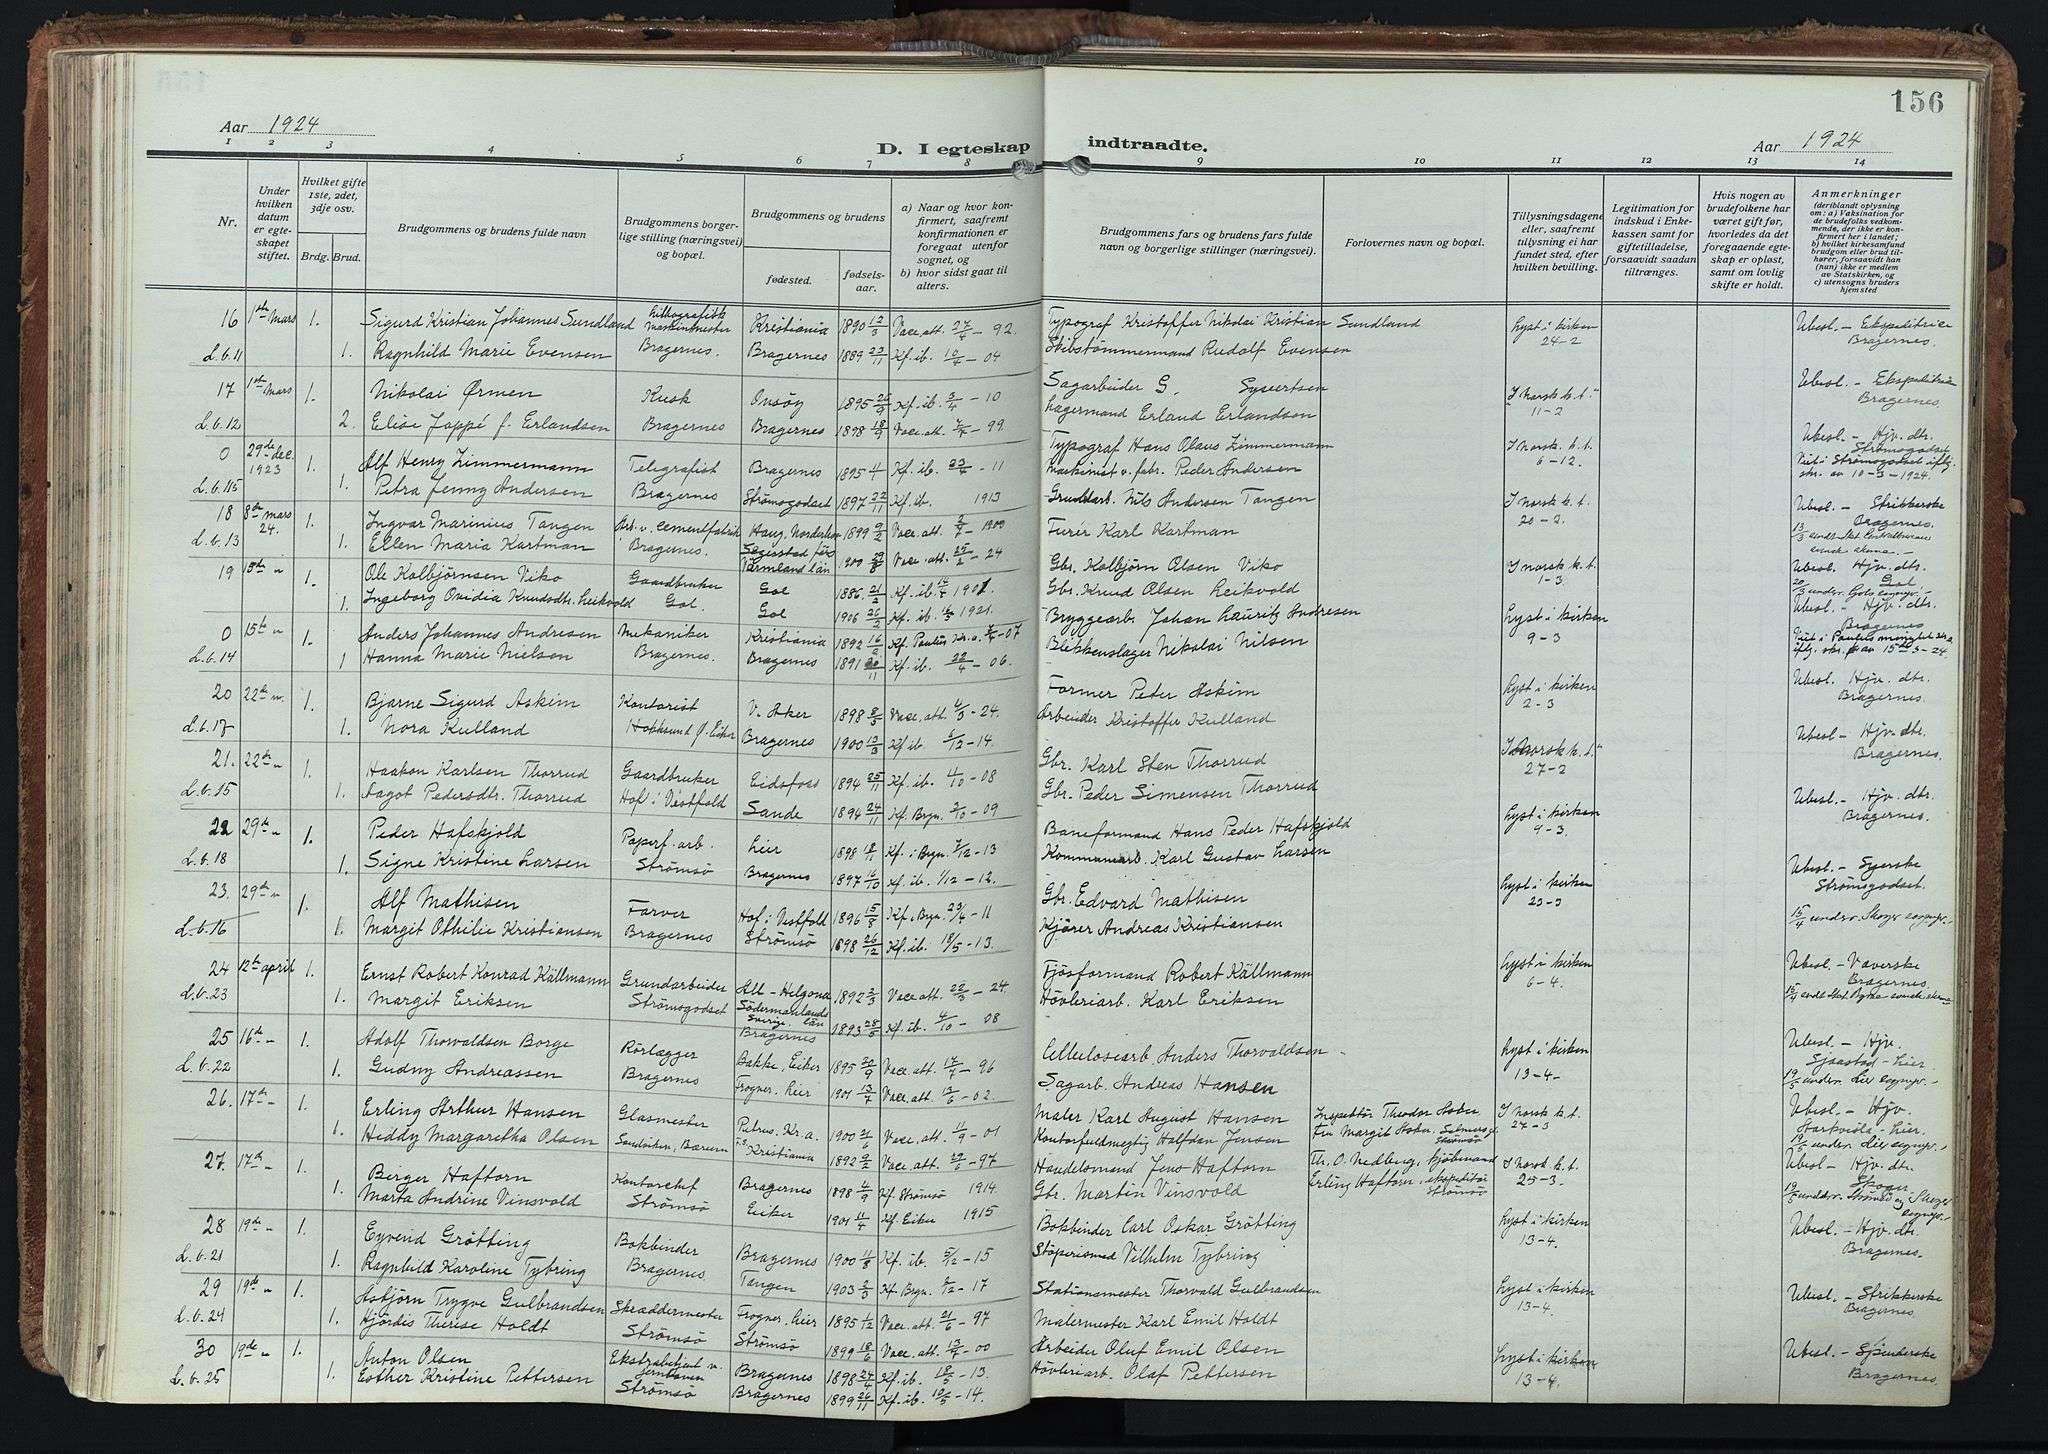 156
Aar 1924
D. I egteskap indtraadte.
Aar 1924
1 2 3 4 5 6 7 8 9 10 11 12 13 14
Nr.
Under hvilken datum er egteskapet stiftet.
Hvilket gifte 1ste, 2det, 3dje osv.
Brdg. Brud.
Brudgommens og brudens fulde navn
Brudgommens borgerlige stilling (næringsvei) og bopæl.
Brudgommens og brudens
fødested.
fødselsaar.
a) Naar og hvor konfirmert, saafremt konfirmationen er foregaat utenfor sognet, og
b) hvor sidst gaat til alters.
Brudgommens fars og brudens fars fulde navn og borgerlige stillinger (næringsvei).
Forlovernes navn og bopæl.
Tillysningsdagene eller, saafremt tillysning ei har fundet sted, efter hvilken bevilling.
Legitimation for indskud i Enkekassen samt for giftetilladelse, forsaavidt saadan tiltrænges.
Hvis nogen av brudefolkene har været gift før, hvorledes da det foregaaende egteskap er opløst, samt om lovlig skifte er holdt.
Anmerkninger (deriblandt oplysning om: a) Vaksination for de brudefolks vedkommende, der ikke er konfirmert her i landet; b) hvilket kirkesamfund brudgom eller brud tilhører, forsaavidt han (hun) ikke er medlem av Statskirken, og c) utensogns bruders hjemsted
16 1ste Mars 1. Sigurd Kristian Johannes Sundland Lithografisk Maskinmester Kristiania 1890 12/3 Vacc. att. 27/7 – 92. Typograf Kristoffer Nikolai Kristian Sundland Lyst i kirken 24-2 Ubesl. – Ekspeditrice
L.b.11 1. Ragnhild Marie Evensen Bragernes. Bragernes 1889 23/11 Kf. ib. 10/4 – 04 Skibstømmermand Rudolf Evensen Bragernes.
17 1ste Mars 1. Nikolai Ørmen Kusk Onsøy 1895 26/9 Kf. ib. 3/4 – 10 Sagarbeider G. Syvertsen I "Norsk k. t." 11-2 Ubesl. – Ekspeditrice
L.b.12 2. Elise Jappé f. Erlandsen Bragernes Bragernes 1898 18/9 Vacc. att. 7/7 – 99 Lagermand Erland Erlandsen Bragernes.
0 29de dec. 1923 1. Alf Henry Zimmermann Telegrafist Bragernes 1895 Kf. ib. 23/4 – 11 Typograf Hans Olaus Zimmermann I Norsk k. t. 6-12. Ubesl. – Hjv. dtr. Strømsgodset
L.b.115 1. Petra Jenny Andersen Bragernes Strømsgodset 1897 22/11 Kf. ib. 1913 Maskinist v. fabr. Peder Andersen Viet i Strømsgodset iflg. skr. av 10-3-1924.
18 8de Mars 24. 1. Ingvar Marinius Tangen Arb. v. Cementfabrik Haug, Norderhov 1899 9/2 Vacc. att. 1900 Grundarb. Nils Andersen Tangen I Norsk k. t. 20-2. Ubesl. – Strikkerske
L.b.13 1. Ellen Maria Kartman Bragernes. Värmland län 1900 29/8 Vacc. att. 25/2 – 24 Furir Karl Kartman Bragernes.
19 15de " 1. Ole Kolbjørnsen Viko Gaardbruker Gol 1886 21/2 Kf. ib. 1901 Gbr. Kolbjørn Olsen Viko I norsk k. t. 1-3. Ubesl. Hjv. dtr. Gol
1. Ingeborg Ovidia Knudsdtr. Leikvold Gol. Gol 1906 26/2 Kf. ib. 1921. Gbr. Knud Olsen Leikvold 20/3 underr. Gols sognepr. –
0 15de " 1. Anders Johannes Andresen Mekaniker Kristiania 1892 16/2 Kf. Paulus Kr.a. –07 Bryggearb. Johan Lauritz Andresen Lyst i kirken 9-3 Ubesl – Hjv. dtr. Bragernes
L.b.14 1 Hanna Marie Nielsen Bragernes. Bragernes 1891 Kf. ib. 22/4 – 06. Blikkenslager Nikolai Nilsen Viet i Paulus menighet iflg. skr. av 15de 3-24.
20 22de m. 1. Bjarne Sigurd Askim Kontorist V. Aker 1898 8/5 Vacc. att. 4/3 – 24. Former Peder Askim Lyst i kirken 2-3 Ubesl. Hjv. dtr.
L.b.17 1. Nora Kulland Hokksund Ø. Eiker Bragernes 1900 12/3 Kf. ib. 6/12 – 14. Arbeider Kristoffer Kulland Bragernes.
21. 22de " 1. Haakon Karlsen Thorrud Gaardbruker Eidsfoss 1894 25/11 Kf. ib. 4/10 – 08 Gbr. Karl Sten Thorrud I "Norsk k. t." 27-2 Ubesl – Hjv. dtr.
L.b.15 1. Aagot Pedersdtr. Thorrud Hof i Vestfold Sande 1894 24/11 Kf. Bryn. 3/10 – 09 Gbr. Peder Simensen Thorrud Bragernes.
22 29de " 1. Peder Hafskjold Papirf. arb. Lier 1898 18/11 Kf. i Bryn. 7/12 – 13 Baneformand Hans Peder Hafskjold Lyst i kirken 9-3. Ubesl. – Hjv. dtr.
L.b.18 1. Signe Kristine Larsen Strømsø Bragernes 1897 16/10 Kf. ib. 1/12 – 12. Kommunearb. Karl Gustav Larsen Bragernes.
23. 29de " 1. Alf Mathisen Farver Hof i Vestfold 1896 15/8 Kf. i Bryn. 23/4 – 11 Gbr. Edvard Mathisen Lyst i kirken 23-3 Ubesl. – Syerske Strømsgodset.
L.b.16 1. Margit Othilie Kristiansen Bragernes Strømsø 1898 26/12 Kf. ib. 18/5 – 13. Kjører Andreas Kristiansen 15/4 underr. Skoger sognepr. –
24 12te april 1. Ernst Robert Konrad Källmann Grundarbeider All – Helgona Södermanlands län Sverige 1892 2/3 Vacc att. 22/3 – 24. Fjøsformand Robert Källmann Lyst i kirken 6-4. Ubesl. – Væverske
L.b.23 1. Margit Eriksen Strømsgodset Bragernes 1893 28/5 Kf. ib. 4/10 – 08 Høvleriarb. Karl Eriksen Bragernes.
25 16de " 1. Adolf Thorvaldsen Borge Rørlægger Bakke, Eiker 1895 20/9 Vacc att. 17/7 – 96 Cellulosearb. Anders Thorvaldsen – Lyst i kirken 13-4- Ubesl. – Hjv. Sjaastad – Lier
L.b.22 1. Gudny Andreassen Bragernes Frogner. Lier 1901 13/7 Vacc. att. 13/6 – 02. Sagarb. Andreas Hansen 19/5 underr. Lier sognepr. –
26. 17de " 1. Erling Arthur Hansen Glasmester Petrus. Kr. a. 1900 21/6 Vacc. att. 11/9 – 01 Maler Karl August Hansen Inspektør Theodor Hober I Norsk k. t. 27-3 Ubesl – Hjv.
1. Hiddy Margaretha Olsen Sandviken, Bærum Kristiania 1892 9/2 Vacc. att. 29/6 – 97 Kontorfuldmegtig Halfdan Jensen Fru Margit Hober Strømsø 19/5 underr. Lier sognepr. –
27. 17de " 1. Birger Haftorn Kontorchef Bragernes 1898 4/9 Kf. Strømsø 1914. Handelsmand Jens Haftorn Th. O. Nedberg, kjøbmand I Norsk k. t. 25-3. Ubesl – Hjv. dtr. Skoger
1. Marta Andrine Vinsvold Strømsø Eiker 1901 11/4 Kf. Eiker 1915 Gbr. Martin Vinsvold Erling Haftorn, ekspeditør Strømsø 19/5 underr. Strømsø og Skoger sognepr. –
28 19de " 1. Eyvind Grøtting Bokbinder Bragernes 1900 11/8 Kf. ib. 5/12 – 15 Bokbinder Carl Oskar Grøtting Lyst i kirken 13-4. Ubesl – Hjv. dtr.
L.b.21 1. Ragnhild Karoline Tybring Bragernes. Tangen 1903 2/3 Kf. Bryn. 2/12 – 17 Støperismed Vilhelm Tybring Bragernes.
29 19de " 1. Asbjørn Trygve Gulbrandsen Skræddermester Frogner. Lier 1895 1/12 Vacc. att. 21/6 – 97 Stationsmester Thorvald Gulbrandsen Lyst i kirken 13-4. Ubesl. – Strikkerske
L.b.24 1. Hjørdis Therese Holdt Strømsø Strømsø 1899 18/6 Vacc. att. 13/7 – 00 Malermester Karl Emil Holdt Bragernes.
30 19de " 1. Anton Olsen Ekstrabetjent v. Jernbanen Bragernes 1898 24/4 Kf. ib. 18/5 – 13. Arbeider Oluf Emil Olsen Lyst i kirken 13-4. Ubesl. –
L.b.25 1. Esther Kristine Pettersen Strømsø Bragernes 1899 26/11 Kf. ib. 10/5 – 14. Høvleriarb. Olaf Pettersen Bragernes.